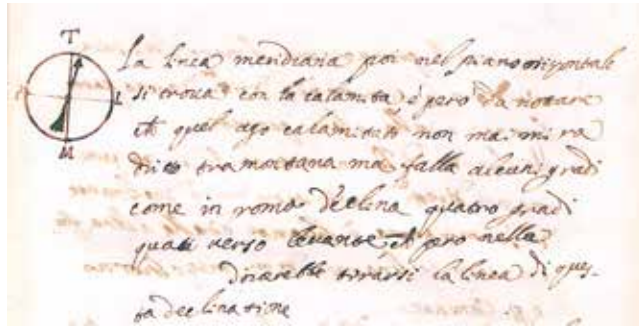 T
L
M
La linea meridiana poi nel piano orizontale
si trova con la calamita, è però da notare
ch quel ago calamitato non mai mira
dritto tramontana ma falla alcuni gradi
come in roma declina quatro gradi
quasi verso levante et pero nella
tirarsi la linea di ques-
ta declinatione